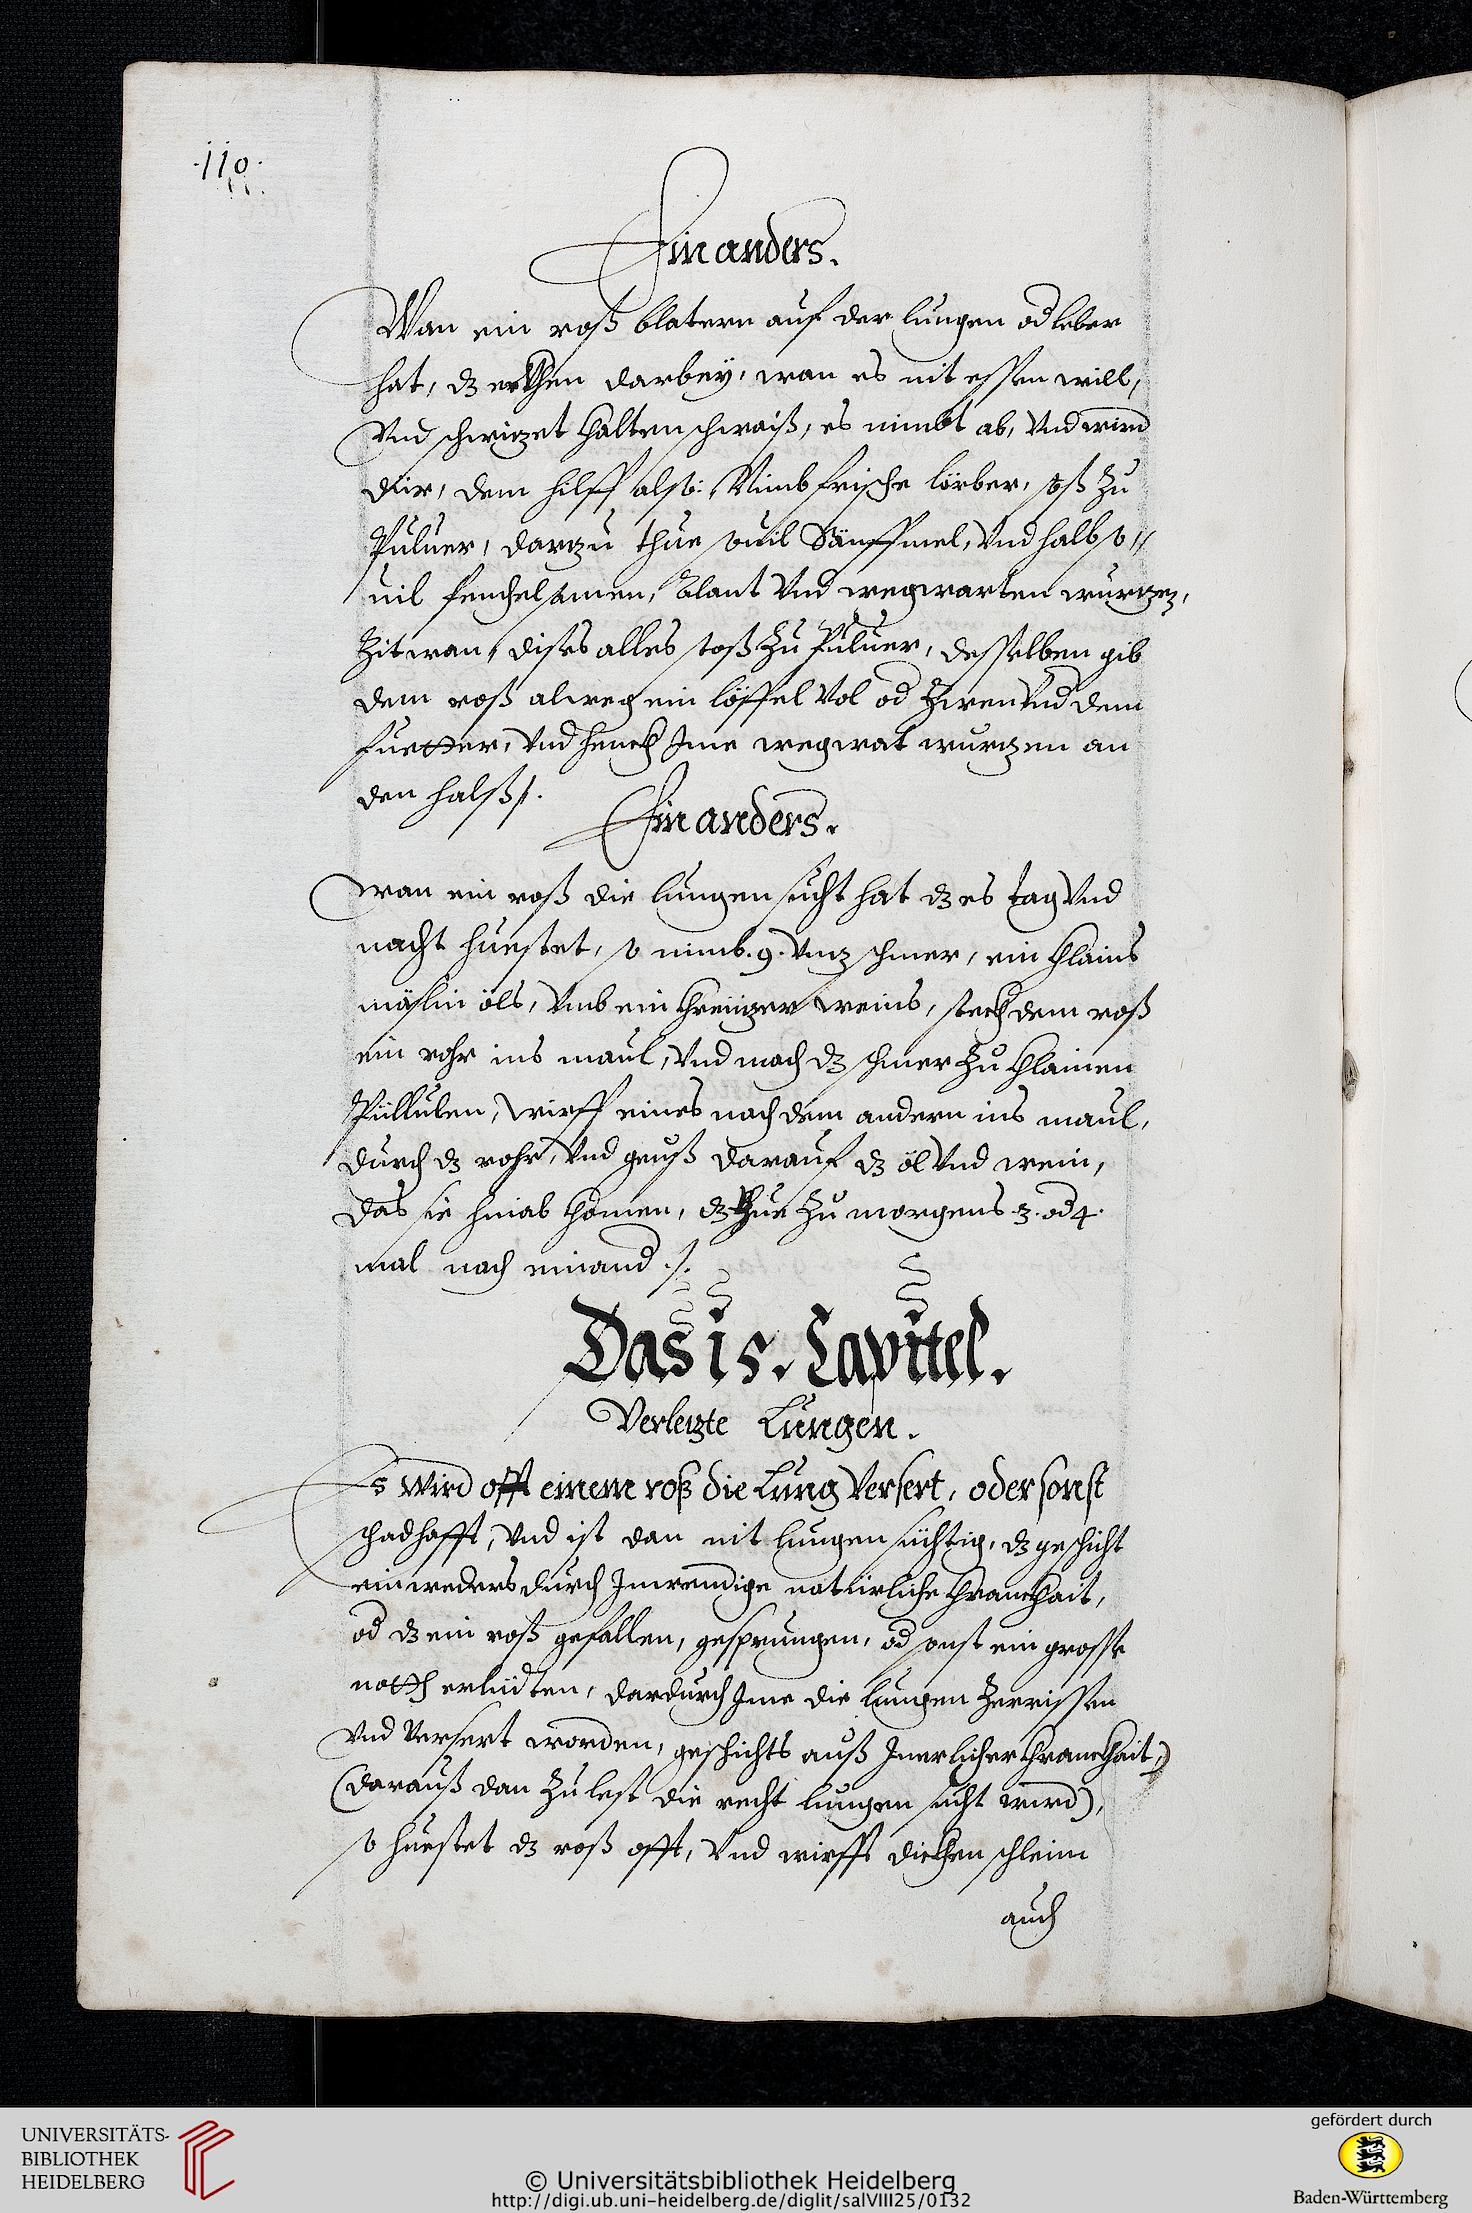 .110.
Ein anders.
Wan ein roß blatern auf der lungen od leber
hat, dz erkhen darbeÿ, wan es nit essen will,
Vnd schwizet khalten schwaiß, es nimbt ab, Vnd wird
dür, dem hilff also: Nimb frische lörber, stoß zu
Puluer, darzu thue souil Sänffmel, Vnd halb so//
uil fenchelsamen, Alant Vnd wegwarten wurzen,
Zitwan, dises alles stoß zu Puluer, desselben gib
dem roß alweg ein löffel Vol od Zwen Vnd dem
fuetter, Vnd henckh Ime wegwat wurzen an
den halß/.
Ein anders.
wan ein roß die lungensucht hat dz es tag Vnd
nacht huestet, so nimb .9. Vnz schmer, ein khlains
mäslin öls, Vmb ein khreüzer weins, steckh dem roß
ein rohr ins maul, Vnd mach dz schmer zu khlainen
Püllulen, wirff eines nach dem andern ins maul,
durch dz rohr, Vnd geuß darauf dz öl Vnd wein,
das sie hinab khomen, dz thue zu morgens .3. od 4.
mal nach einand ./.
Das 15. Capitel.
Verlezte Lungen.
Es wird offt einem roß die Lung Versert, oder sonst
schadhafft, Vnd ist dan nit lungensüchtig, dz geschicht
einweders durch Inwendige natürliche khranckhait,
od dz ein roß gefallen, gesprungen, od sonst ein grosse
notth erlidten, dardurch Ime die lungen Zerrissen
Vnd Versert worden, geschichts auß Inerlicher khranckhait,
(darauß dan Zu lest die recht lungen sucht wird),
so huestet dz roß offt, Vnd wirfft dickhen schleim
auch
UNIVERSITÄTS-
BIBLIOTHEK
HEIDELBERG
© Universitätsbibliothek Heidelberg
http://digi.ub.uni-heidelberg.de/diglit/salVIII25/0132
gefördert durch
Baden-Württemberg